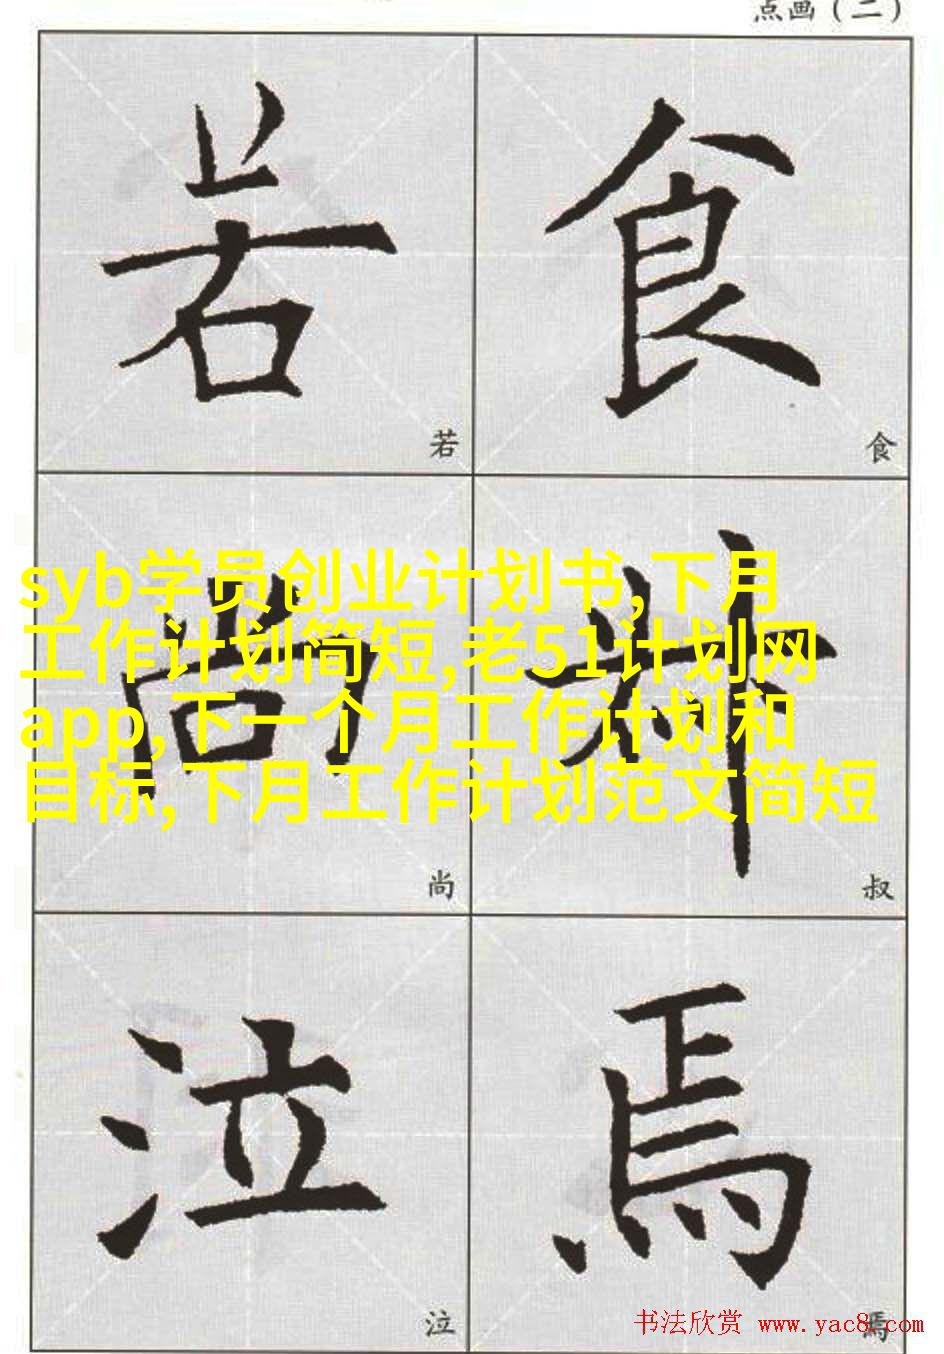 点画（二）
若 食
若 食
syb学员创业计划书,下月
工作计划简短,老51计划网
app,下一个月工作计划和
目标,下月工作计划范文简短
尚 叔
尚 叔
泣 焉
泣 焉
书法欣赏 www.yac8.com